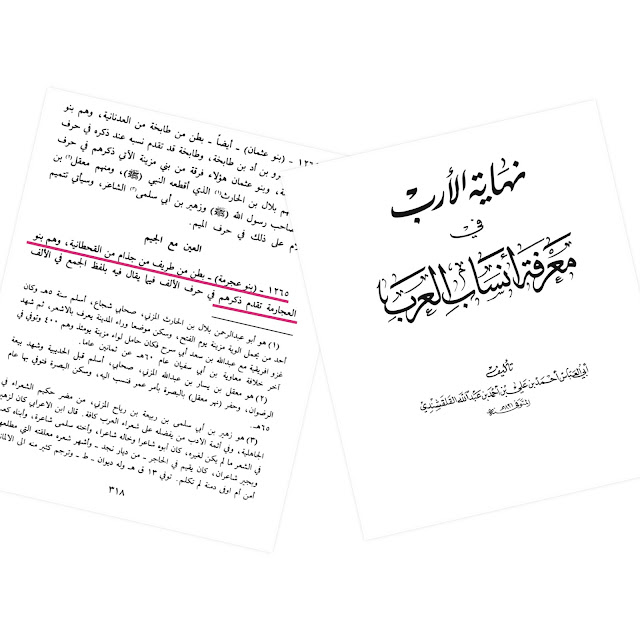 نهاية الأرب
في
معرفة أنساب العرب
تأليف
أبي العباس أحمد بن علي بن أحمد بن عبد الله القلقشندي
١٣٦٤ - (بنو عثمان) - أيضاً - بطن من طابخة من العدنانية، وهم بنو
رو بن أد بن طابخة، وطابخة قد تقدم نسبه عند ذكره في حرف
، وبنو عثمان هؤلاء فرقة من بني مزينة الآتي ذكرهم في حرف
هم بلال بن الحارث(١) الذي أقطعه النبي (ﷺ)، ومنهم معقل(٢) بن
صاحب رسول الله (ﷺ) وزهير بن أبي سلمى(٣) الشاعر، وسيأتي تتميم
لام على ذلك في حرف الميم.
العين مع الجيم
١٢٦٥ - (بنو عجرمة) - بطن من طريف من جذام من القحطانية، وهم بنو
العجارمة تقدم ذكرهم في حرف الألف فيما يقال فيه بلفظ الجمع في الألف
(١) هو أبو عبدالرحمن بلال بن الحارث المزني، صحابي شجاع، أسلم سنة ٥هـ وكان
أحد من يحمل ألوية مزينة يوم الفتح، وسكن موضعا وراء المدينة يعرف بالأشعر، ثم شهد
غزو افريقية مع عبدالله بن سعد أبي سرح فكان حامل لواء مزينة يومئذ وهم ٤٠٠ وتوفي في
آخر خلافة معاوية بن أبي سفيان عام ٦٠هـ عن ثمانين عاما.
(٢) هو معقل بن يسار بن عبدالله المزني، صحابي، أسلم قبل الحديبية وشهد بيعة
الرضوان، وحفر (نهر معقل) بالبصرة بأمر عمر فنسب اليه، وسكن البصرة فتوفي بها عام
٦٥هـ.
(٣) هو زهير بن أبي سلمى بن ربيعة بن رباح المزني، من مضر حكيم الشعراء في
الجاهلية، وفي أئمة الأدب من يفضله على شعراء العرب كافة. قال ابن الاعرابي كان لزهير
في الشعر ما لم يكن لغيره، كان أبوه شاعرا وخاله شاعرا، وأخته سلمى شاعرة، وابناه كعب
وبجير شاعران، كان يقيم في الحاجر - من ديار نجد - وأشهر شعره معلقته التي مطلعها
أمن أم أوفى دمنة لم تكلم. توفي ١٣ ق هـ وله ديوان - ط - وترجم كثير منه الى الالمانية
٣١٨